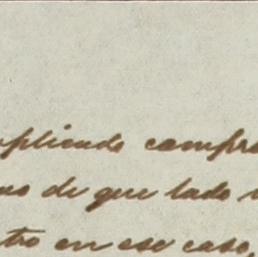 plicado compr
de que lado
tro en ese caso,